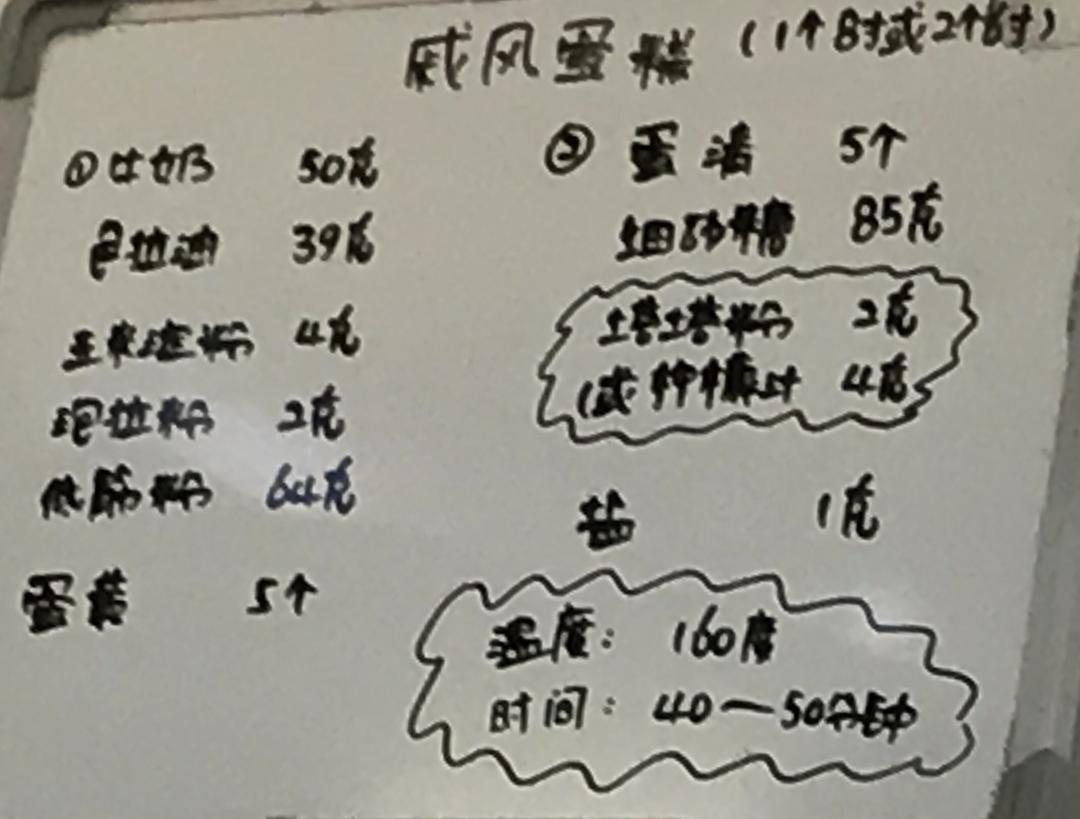 戚风蛋糕 (1个8寸或2个6寸)
①牛奶 50克
色拉油 39克
玉米淀粉 4克
泡打粉 2克
低筋粉 64克
蛋黄 5个
② 蛋清 5个
细砂糖 85克
塔塔粉 2克
(或柠檬汁 4克
盐 1克
温度: 160度
时间: 40—50分钟